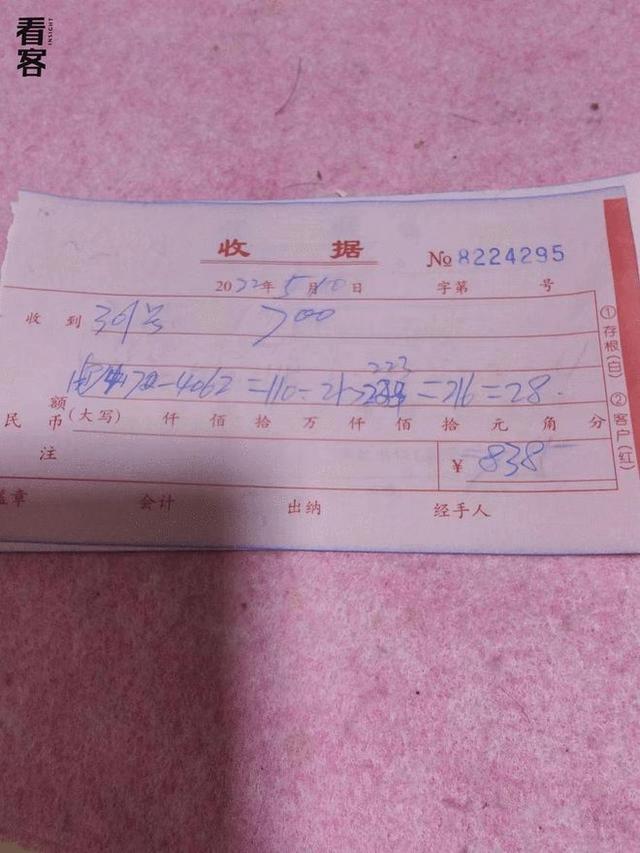 看客
INSIGHT
收 据
№ 8224295
2022年5月10日 字第 号
收到 301号 700
4172-4062=110= 223 =216=28.
民币 额(大写) 仟 佰 拾 万 仟 佰 拾 元 角 分
注 ¥ 838
盖章 会计 出纳 经手人
①存根(白) ②客户(红)